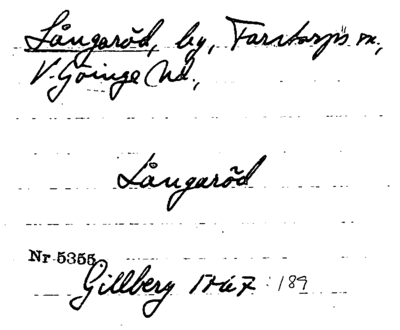 Långaröd, by, Farstorps sn,
V. Göinge hd.,
Långaröd
Nr 5355
Gillberg 1767 : 189